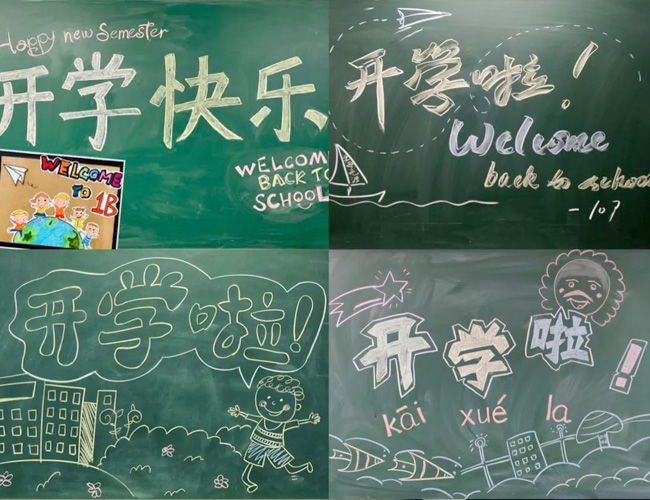 Happy new Semester
开学快乐
WELCOME
TO 1B
WELCOM
BACK TO
SCHOOL
开学啦!
Welcome
back to school
-107
开学啦!
开学啦!
kāi xué la